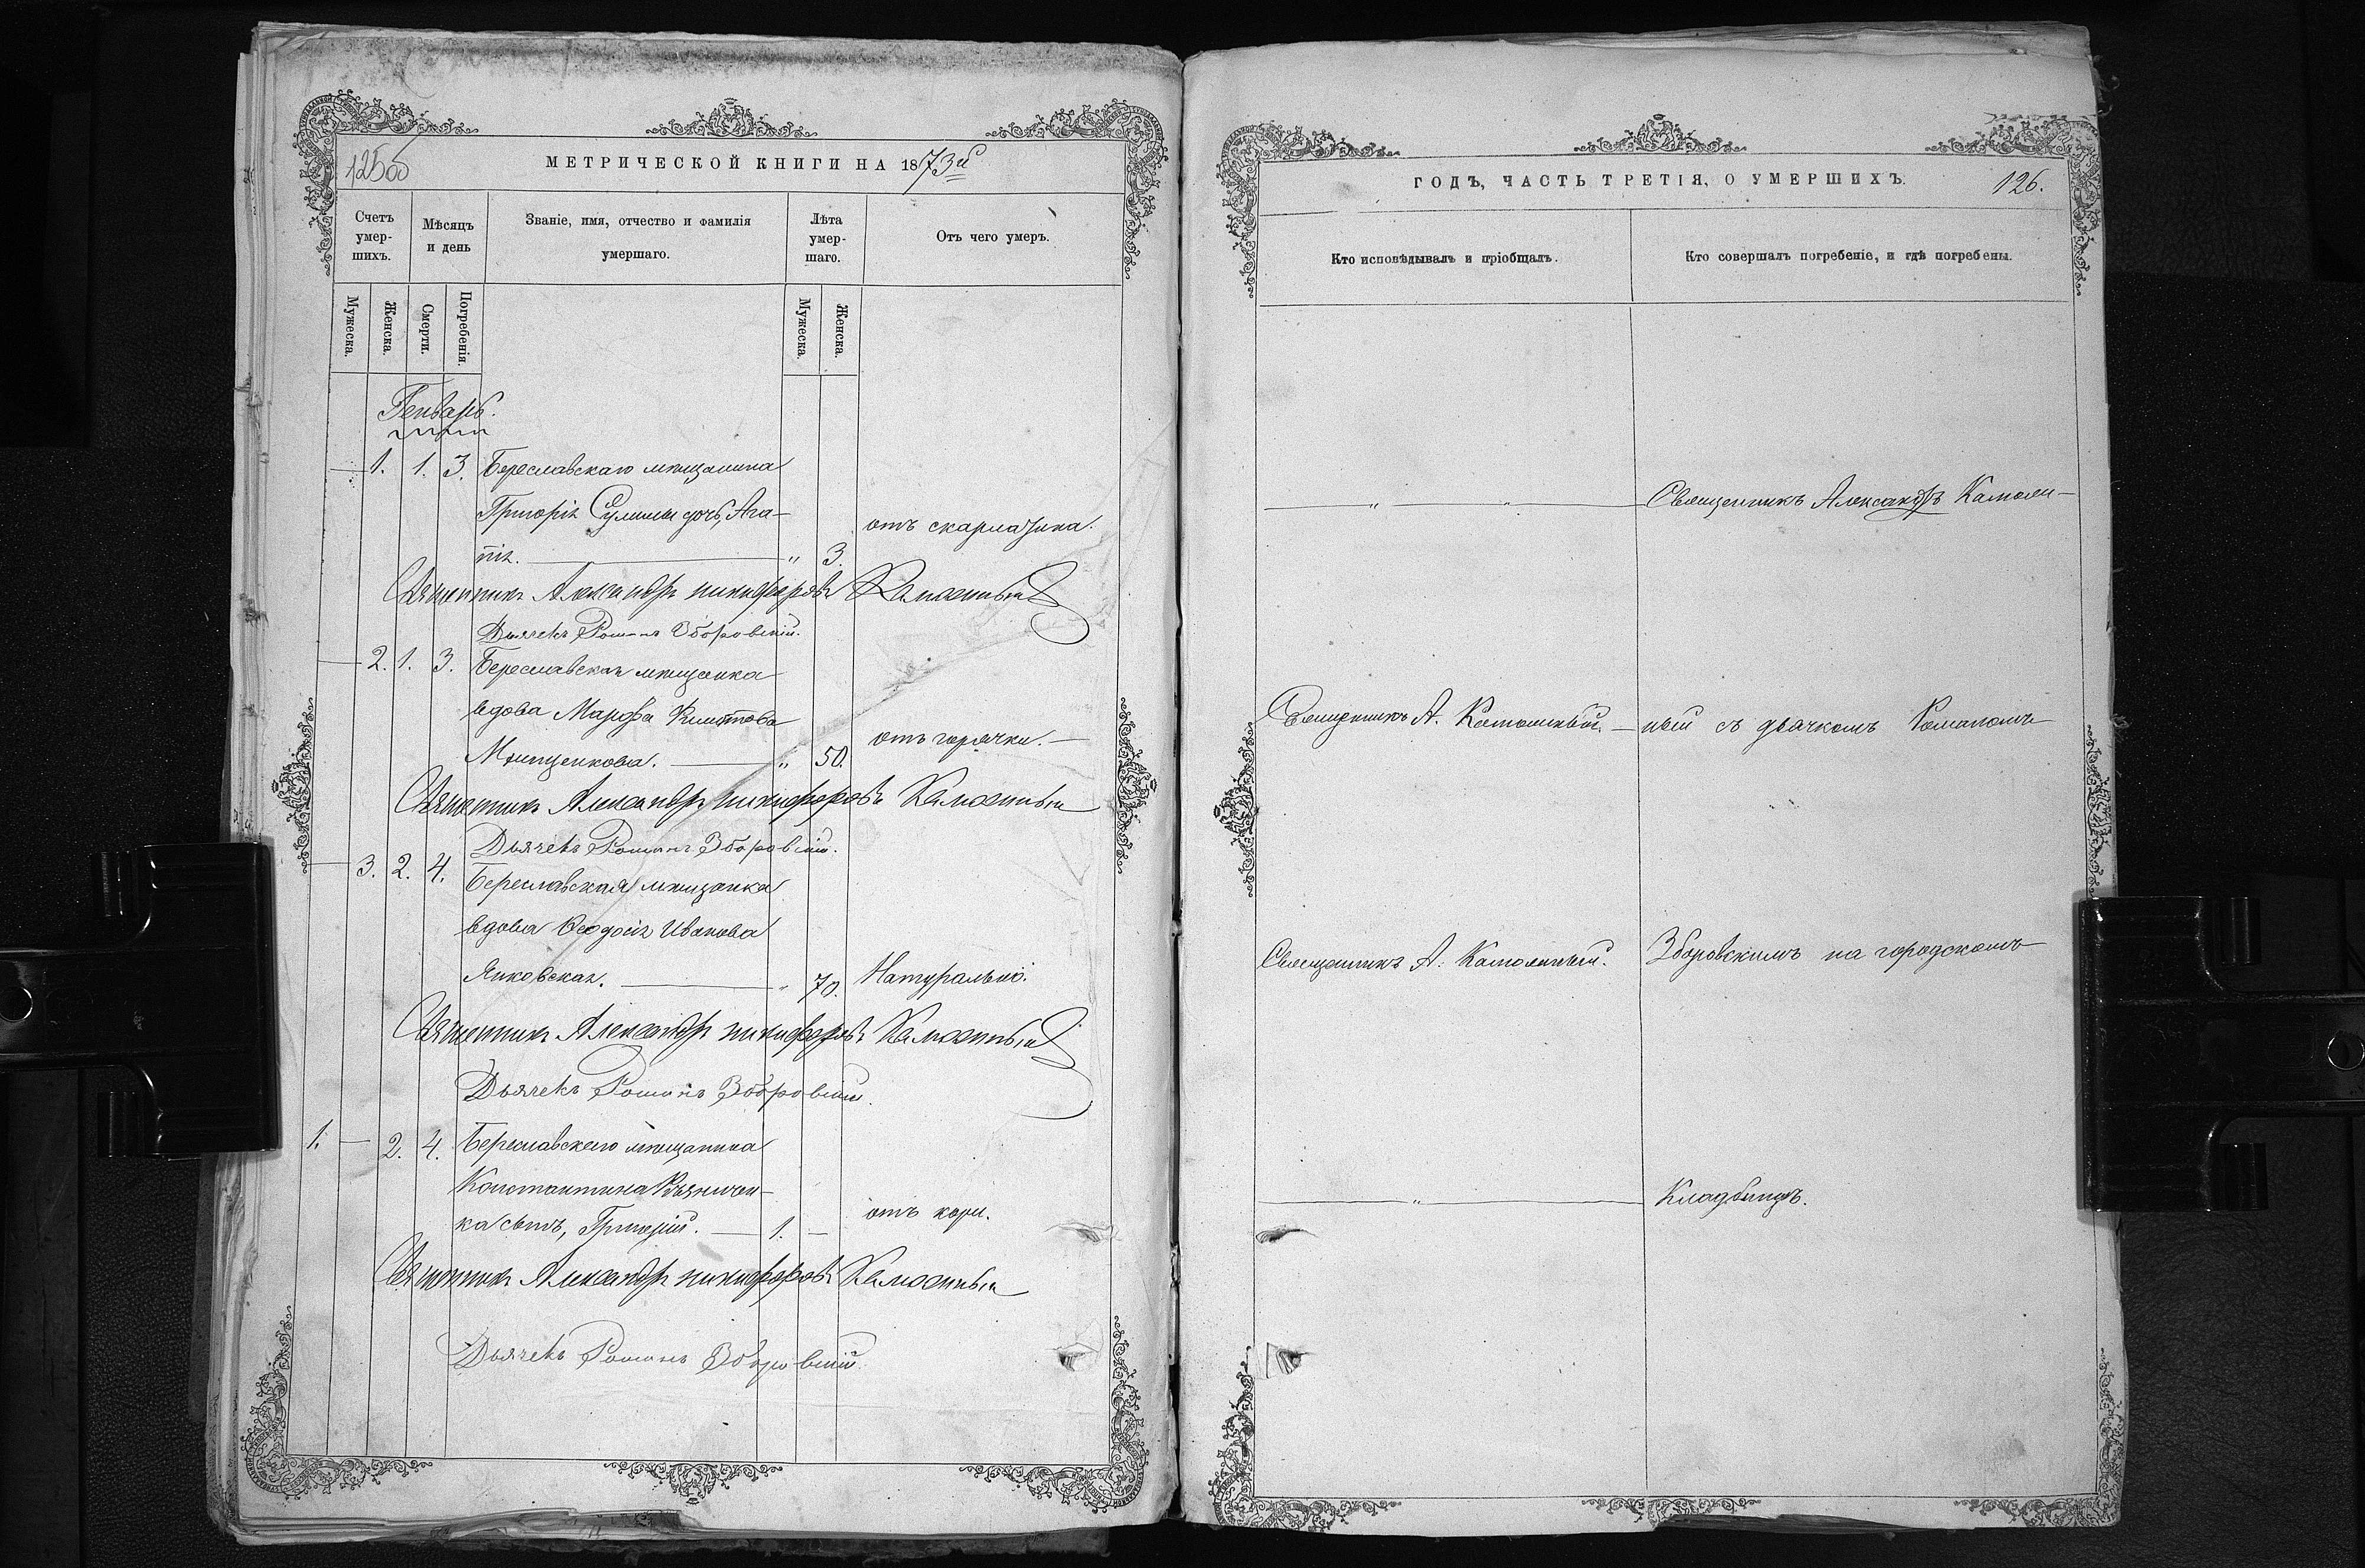 125об
МЕТРИЧЕСКОЙ КНИГИ НА 1873й
Счетъ умер-шихъ.
Мѣсяцъ и день
Званіе, имя, отчество и фамилія умершаго.
Лѣта умер-шаго.
Отъ чего умеръ.
Мужеска.
Женска.
Смерти.
Погребенія.
Мужеска.
Женска.
Генварь.
1. 1. 3. Береславскаго мѣщанина
Григорія Сулимы дочь, Ага-
пія. „ 3. отъ скарлатина.
Священникъ Александръ Никифоровъ
Дьячекъ Романъ Зборовскій.
2. 1. 3. Береславская мѣщанка
вдова Марѳа
Мищенкова. „ 50. отъ горячки.
Священникъ Александръ Никифоровъ
Дьячекъ Романъ Зборовскій.
3. 2. 4. Береславская мѣщанка
вдова Ѳеодосія Иванова
Янковская. „ 70. Натурально.
Священникъ Александръ Никифоровъ
Дьячекъ Романъ Зборовскій.
1. — 2. 4. Береславскаго мѣщанина
Константина
ка сынъ, Григорій. 1. — отъ кори.
Священникъ Александръ Никифоровъ
Дьячекъ Романъ Зборовскій.
ГОДЪ, ЧАСТЬ ТРЕТІЯ, О УМЕРШИХЪ.
126.
Кто исповѣдывалъ и пріобщалъ.
Кто совершалъ погребеніе, и гдѣ погребены.
„ „ Священникъ Александръ
Священникъ А. ный съ дьячкомъ Романомъ
Священникъ А. Зборовскимъ на городскомъ
„ Кладбищѣ.